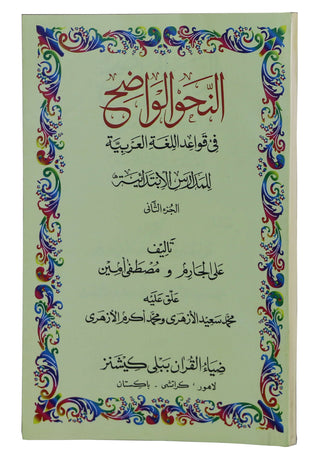 النحو الواضح
في قواعد اللغة العربية
للمدارس الابتدائية
الجزء الثاني
تأليف
علي الجارم و مصطفى أمين
علق عليه
محمد سعيد الأزهري و محمد أكرم الأزهري
ضياء القرآن پبلی کیشنز
لاهور ، کراتشی - باکستان